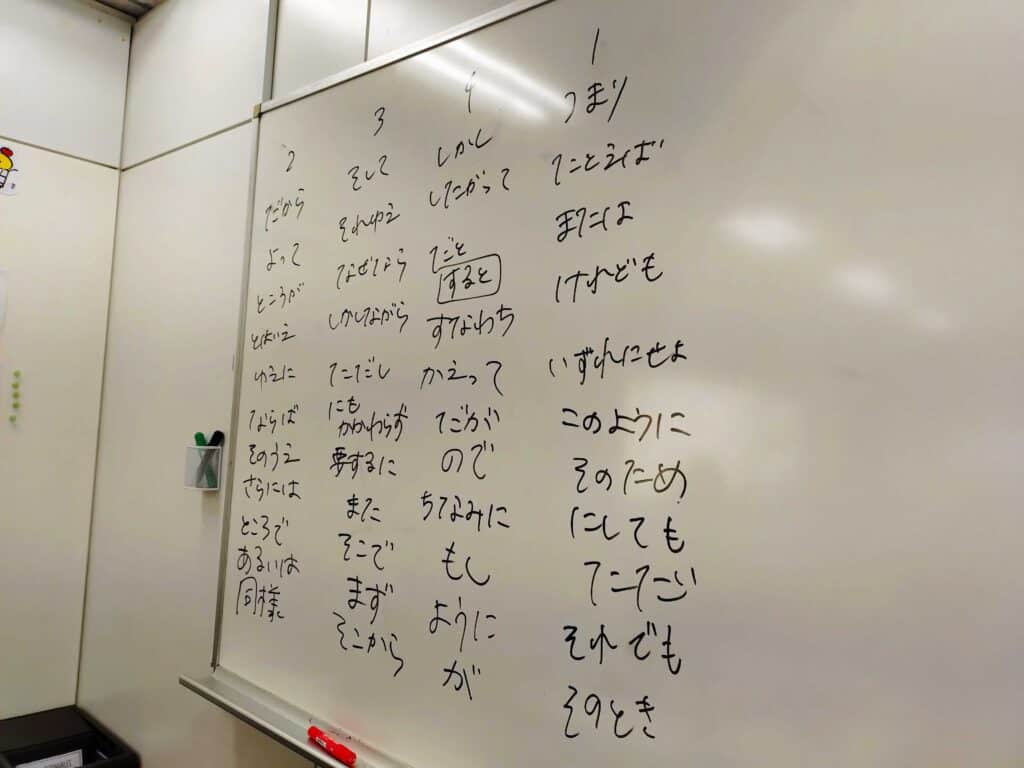 2
だから
よって
ところが
とはいえ
ゆえに
ならば
そのうえ
さらには
ところで
あるいは
同様
3
そして
それゆえ
なぜなら
しかしながら
ただし
にも
かかわらず
要するに
また
そこで
まず
そこから
4
しかし
したがって
すると
すなわち
かえって
だが
ので
ちなみに
もし
ように
が
1
つまり
たとえば
または
けれども
いずれにせよ
このように
そのため
にしても
それでも
そのとき